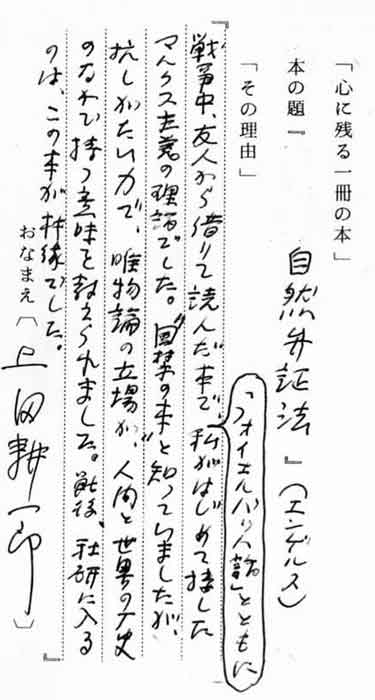 「心に残る一冊の本」
本の題『自然弁証法』(エンゲルス)
「その理由」
「フォイエルバッハ論」とともに
『戦争中、友人から借りて読んだ本で、私がはじめて接した
マルクス主義の理論でした。"国禁の本"と知っていましたが、
抗しがたい力で、唯物論の立場が、人間と世界の厂史
のなかで持つ意味を教えられました。戦後、社研に入る
のは、この本が機縁でした。』
おなまえ〔上田耕一郎〕